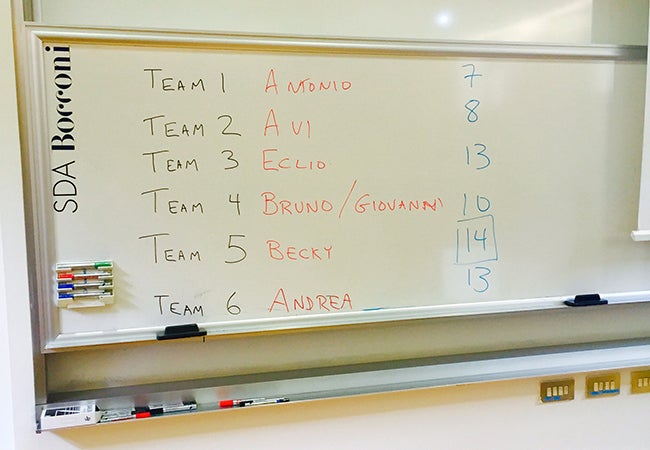 SDA Borroni
TEAM 1 ANTONIO 7
TEAM 2 AVI 8
TEAM 3 ECLIO 13
TEAM 4 BRUNO/GIOVANNI 10
TEAM 5 BECKY 14
TEAM 6 ANDREA 13